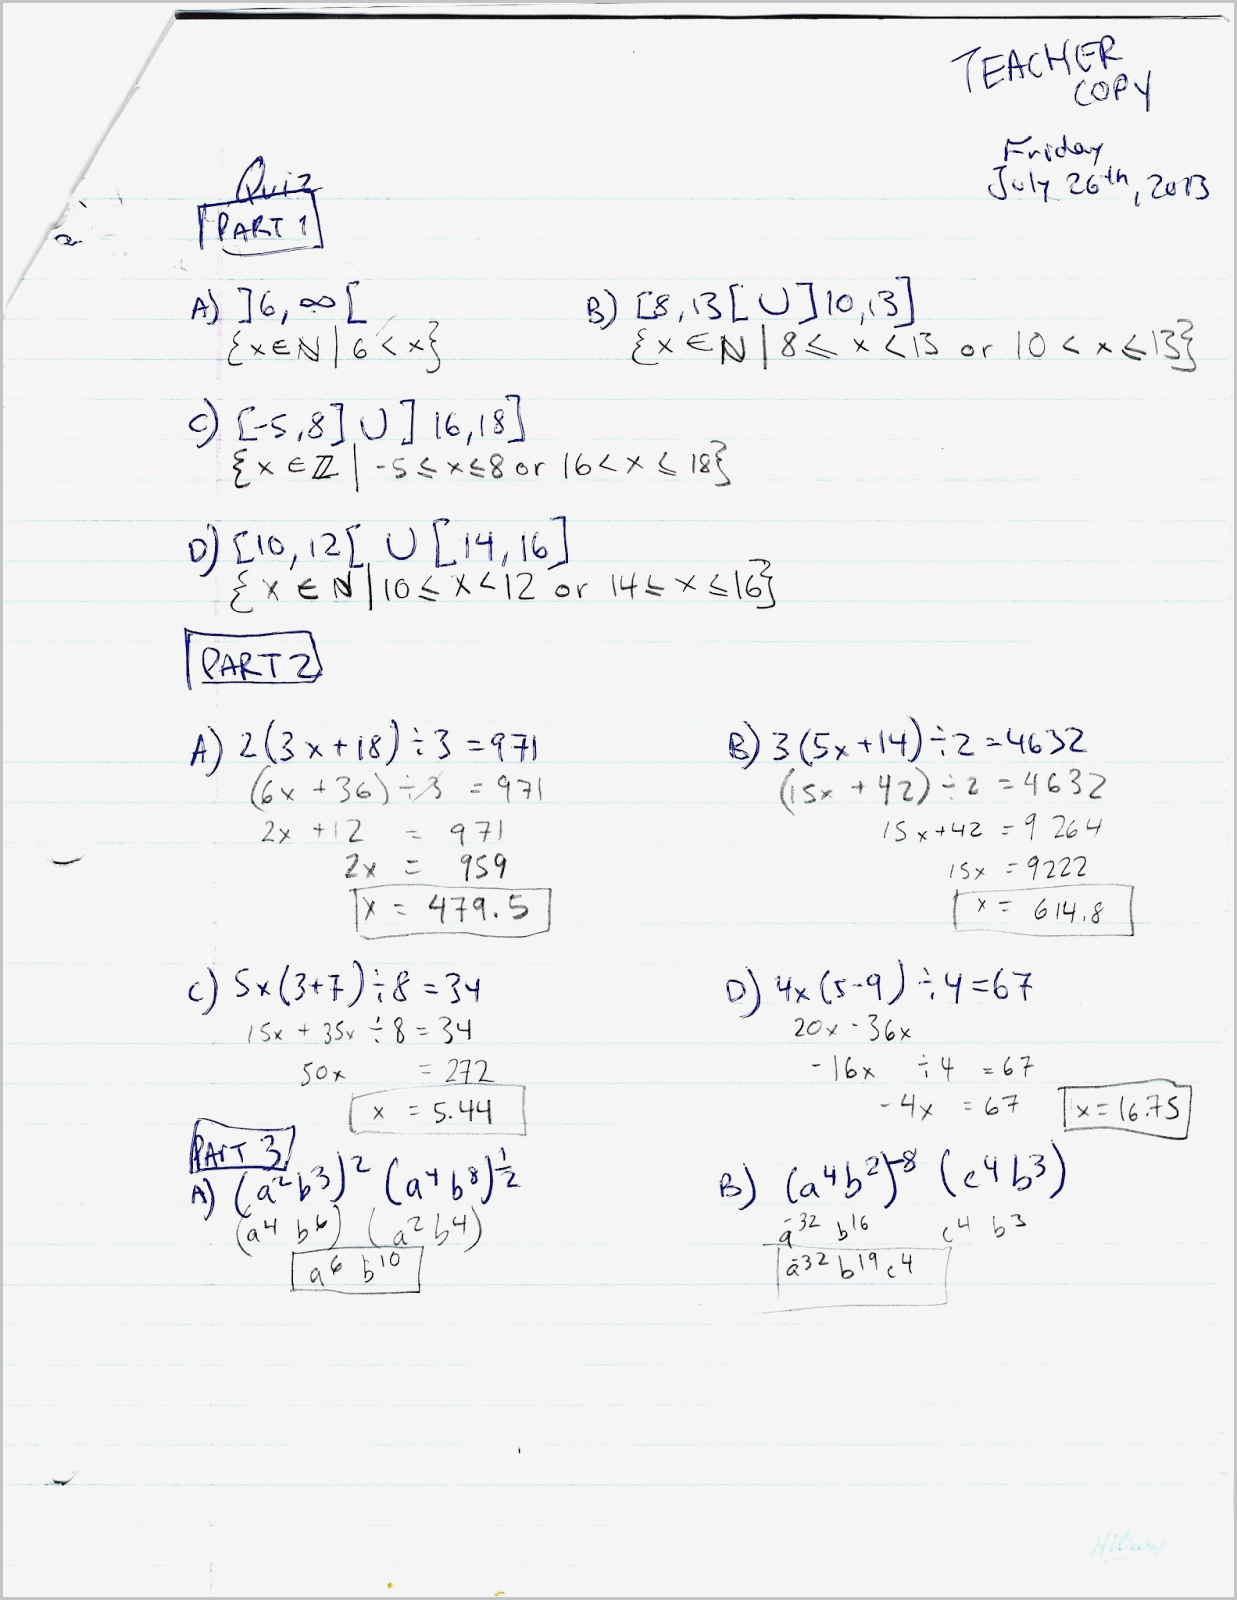 TEACHER
COPY
Friday
July 26th, 2013
Quiz
PART 1
A) ]6, ∞[
{x ∈ ℕ | 6 < x}
B) [8, 13[ ∪ ]10, 13]
{x ∈ ℕ | 8 ≤ x < 13 or 10 < x ≤ 13}
C) [-5, 8] ∪ ] 16, 18]
{x ∈ ℤ | -5 ≤ x ≤ 8 or 16 < x ≤ 18}
D) [10, 12[ ∪ [14, 16]
{x ∈ ℕ | 10 ≤ x < 12 or 14 ≤ x ≤ 16}
PART 2
A) 2(3x+18) ÷ 3 = 971
(6x + 36) ÷ 3 = 971
2x + 12 = 971
2x = 959
x = 479.5
B) 3(5x+14) ÷ 2 = 4632
(15x + 42) ÷ 2 = 4632
15x + 42 = 9 264
15x = 9222
x = 614.8
C) 5x(3+7) ÷ 8 = 34
15x + 35x ÷ 8 = 34
50x = 272
x = 5.44
D) 4x(5-9) ÷ 4 = 67
20x - 36x
-16x ÷ 4 = 67
-4x = 67
x = 16.75
PART 3
A) (a²b³)² (a⁴b⁸)^½
(a⁴ b⁶) (a² b⁴)
a⁶ b¹⁰
B) (a⁴b²)⁻⁸ (c⁴b³)
a⁻³² b¹⁶ c⁴ b³
a⁻³² b¹⁹ c⁴